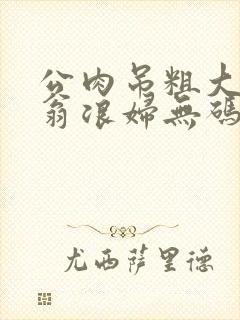 公肉吊粗大
翁浪婦無碼
尤西薩里德